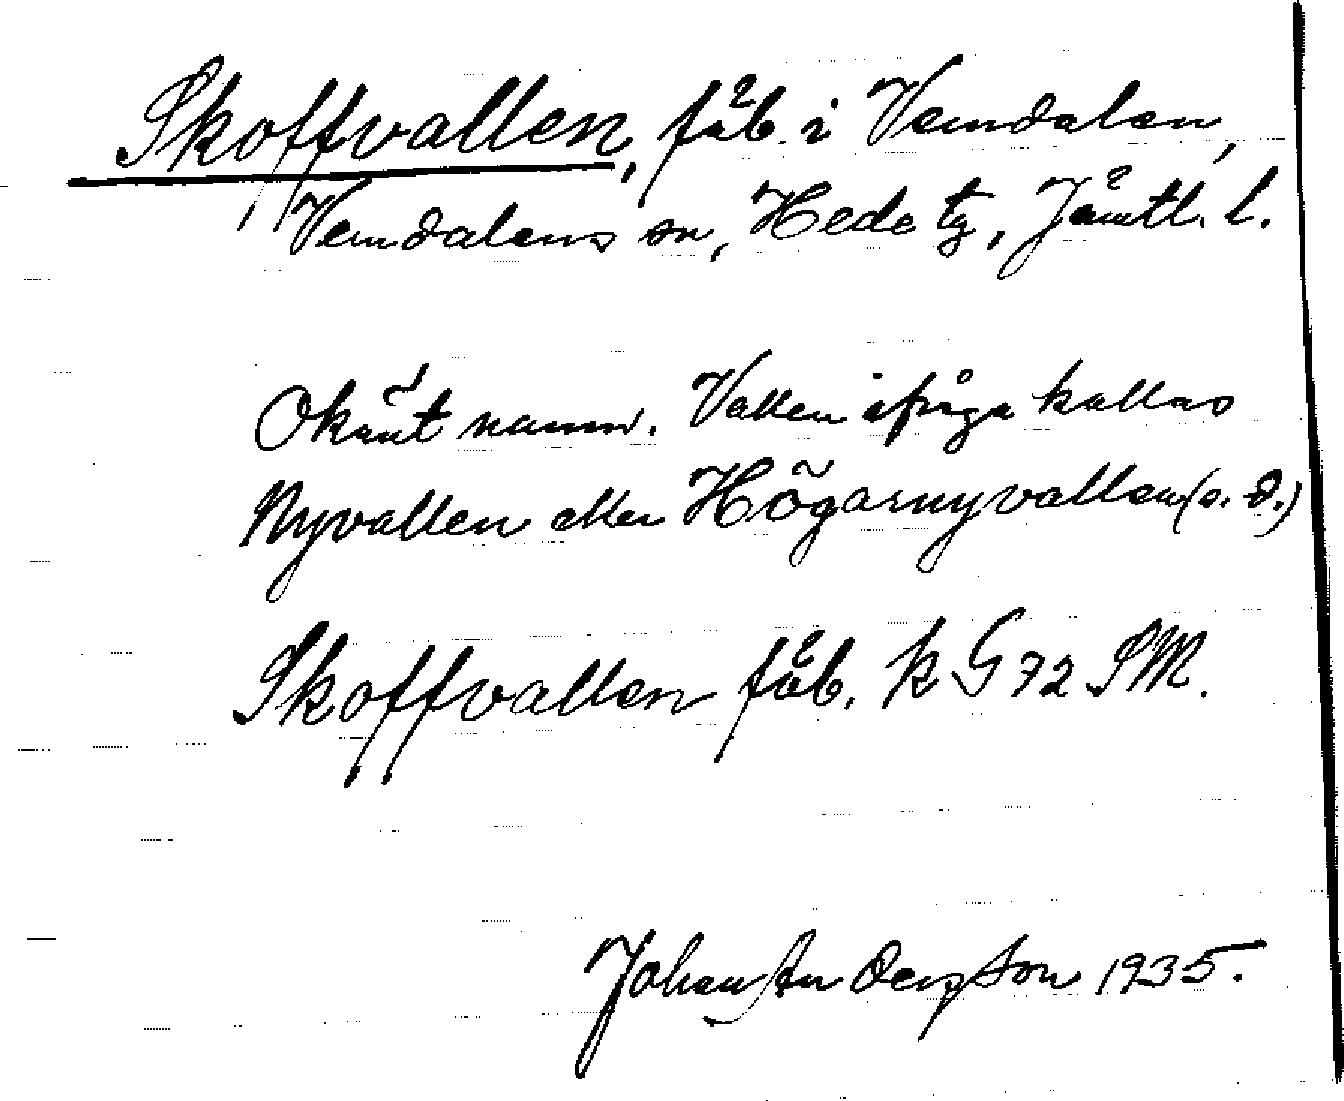 Skoffvallen, fäb. i Vemdalen,
Vemdalens sn, Hede tg, Jämtl. l.
Okänt namn. Vallen ifråga kallas
Nyvallen eller Högarnyvallen (s. d.)
Skoffvallen fäb. k G 72 SM.
Johan Anderson 1935.